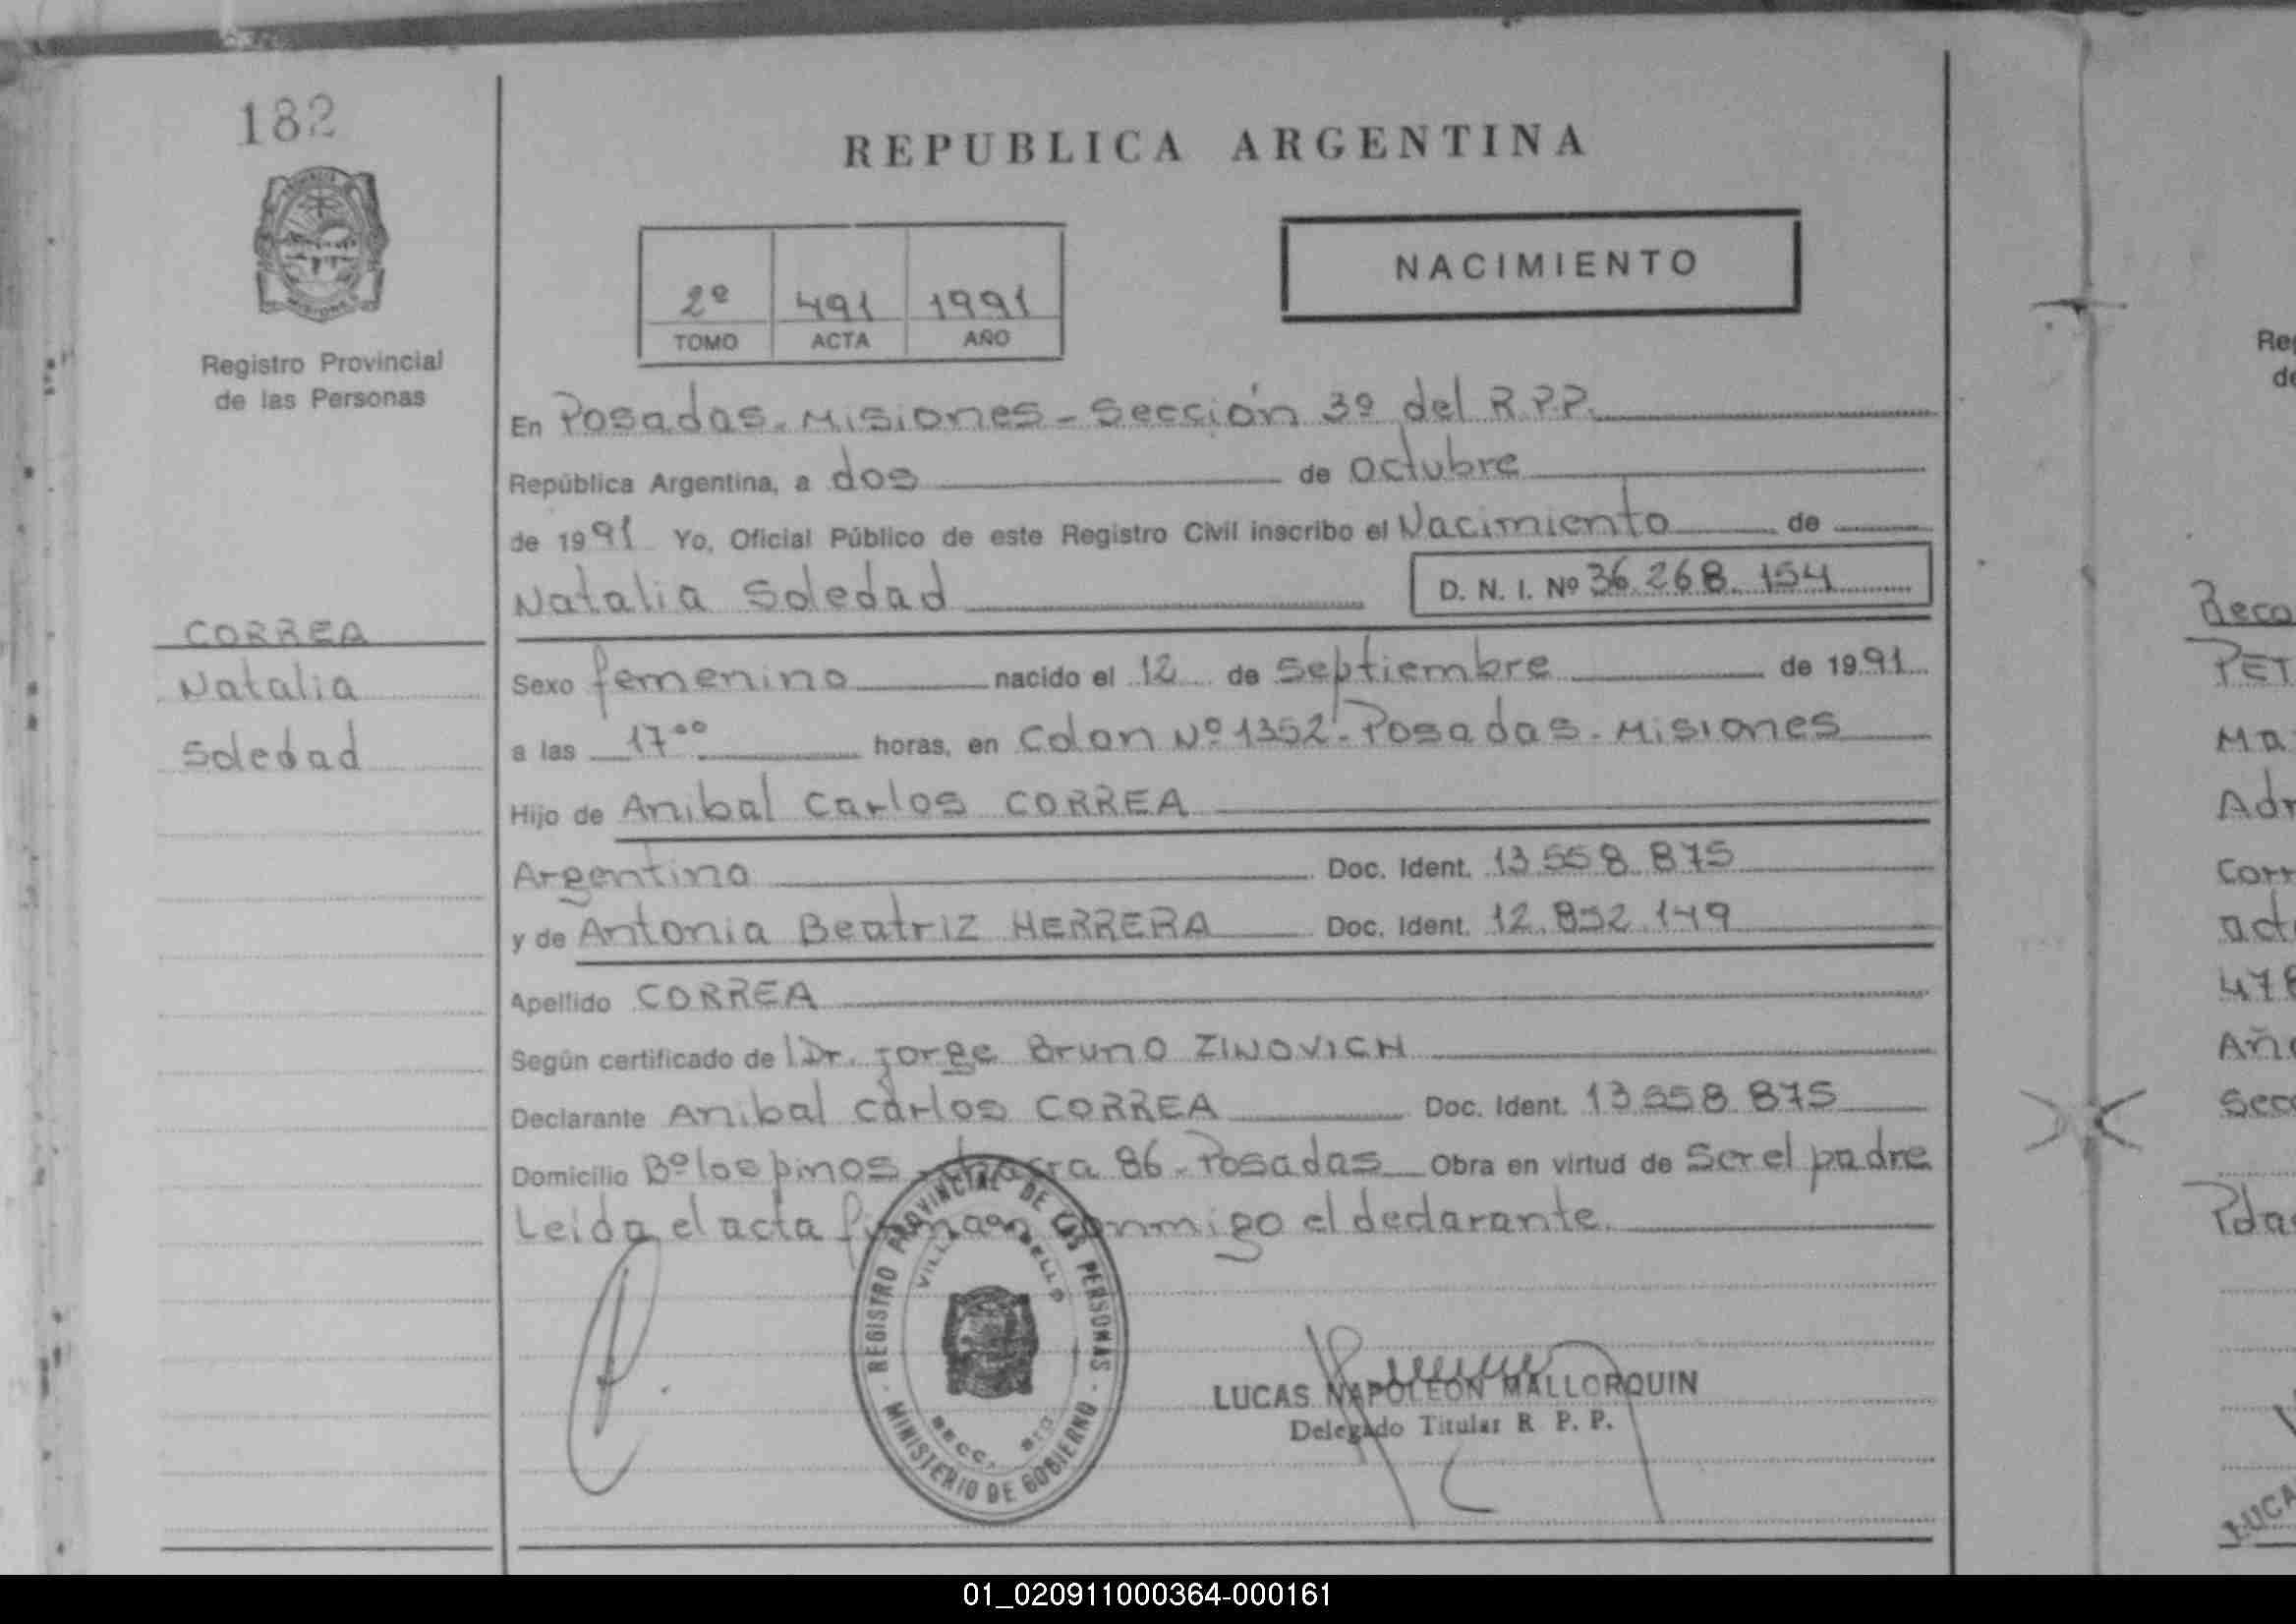 182
REPUBLICA ARGENTINA
NACIMIENTO
2º 491 1991
TOMO ACTA AÑO
Registro Provincial
de las Personas
En Posadas - Misiones - Sección 3º del R.P.P.
República Argentina, a dos de octubre
de 1991 Yo, Oficial Público de este Registro Civil inscribo el Nacimiento de
Natalia Soledad D. N. I. Nº 36.268.154
CORREA
Natalia
Soledad
Sexo femenino nacido el 12 de Septiembre de 1991
a las 17ºº horas, en Colon Nº 1352 - Posadas - Misiones
Hijo de Anibal Carlos CORREA
Argentino Doc. Ident. 13.558.875
y de Antonia Beatriz HERRERA Doc. Ident. 12.852.149
Apellido CORREA
Según certificado de Dr. Jorge Bruno ZINOVICH
Declarante Anibal Carlos CORREA Doc. Ident. 13.558.875
Domicilio Bº los pinos - 86 - Posadas Obra en virtud de Ser el padre
Leida el acta firman conmigo el declarante.
REGISTRO PROVINCIAL DE LAS PERSONAS - MINISTERIO DE GOBIERNO
SECC.
LUCAS NAPOLEON MALLORQUIN
Delegado Titular R. P. P.
Reg
de
Reco
PET
Ma
Adr
Corr
act
478
Año
Secc
Pda
LUCA
01_020911000364-000161